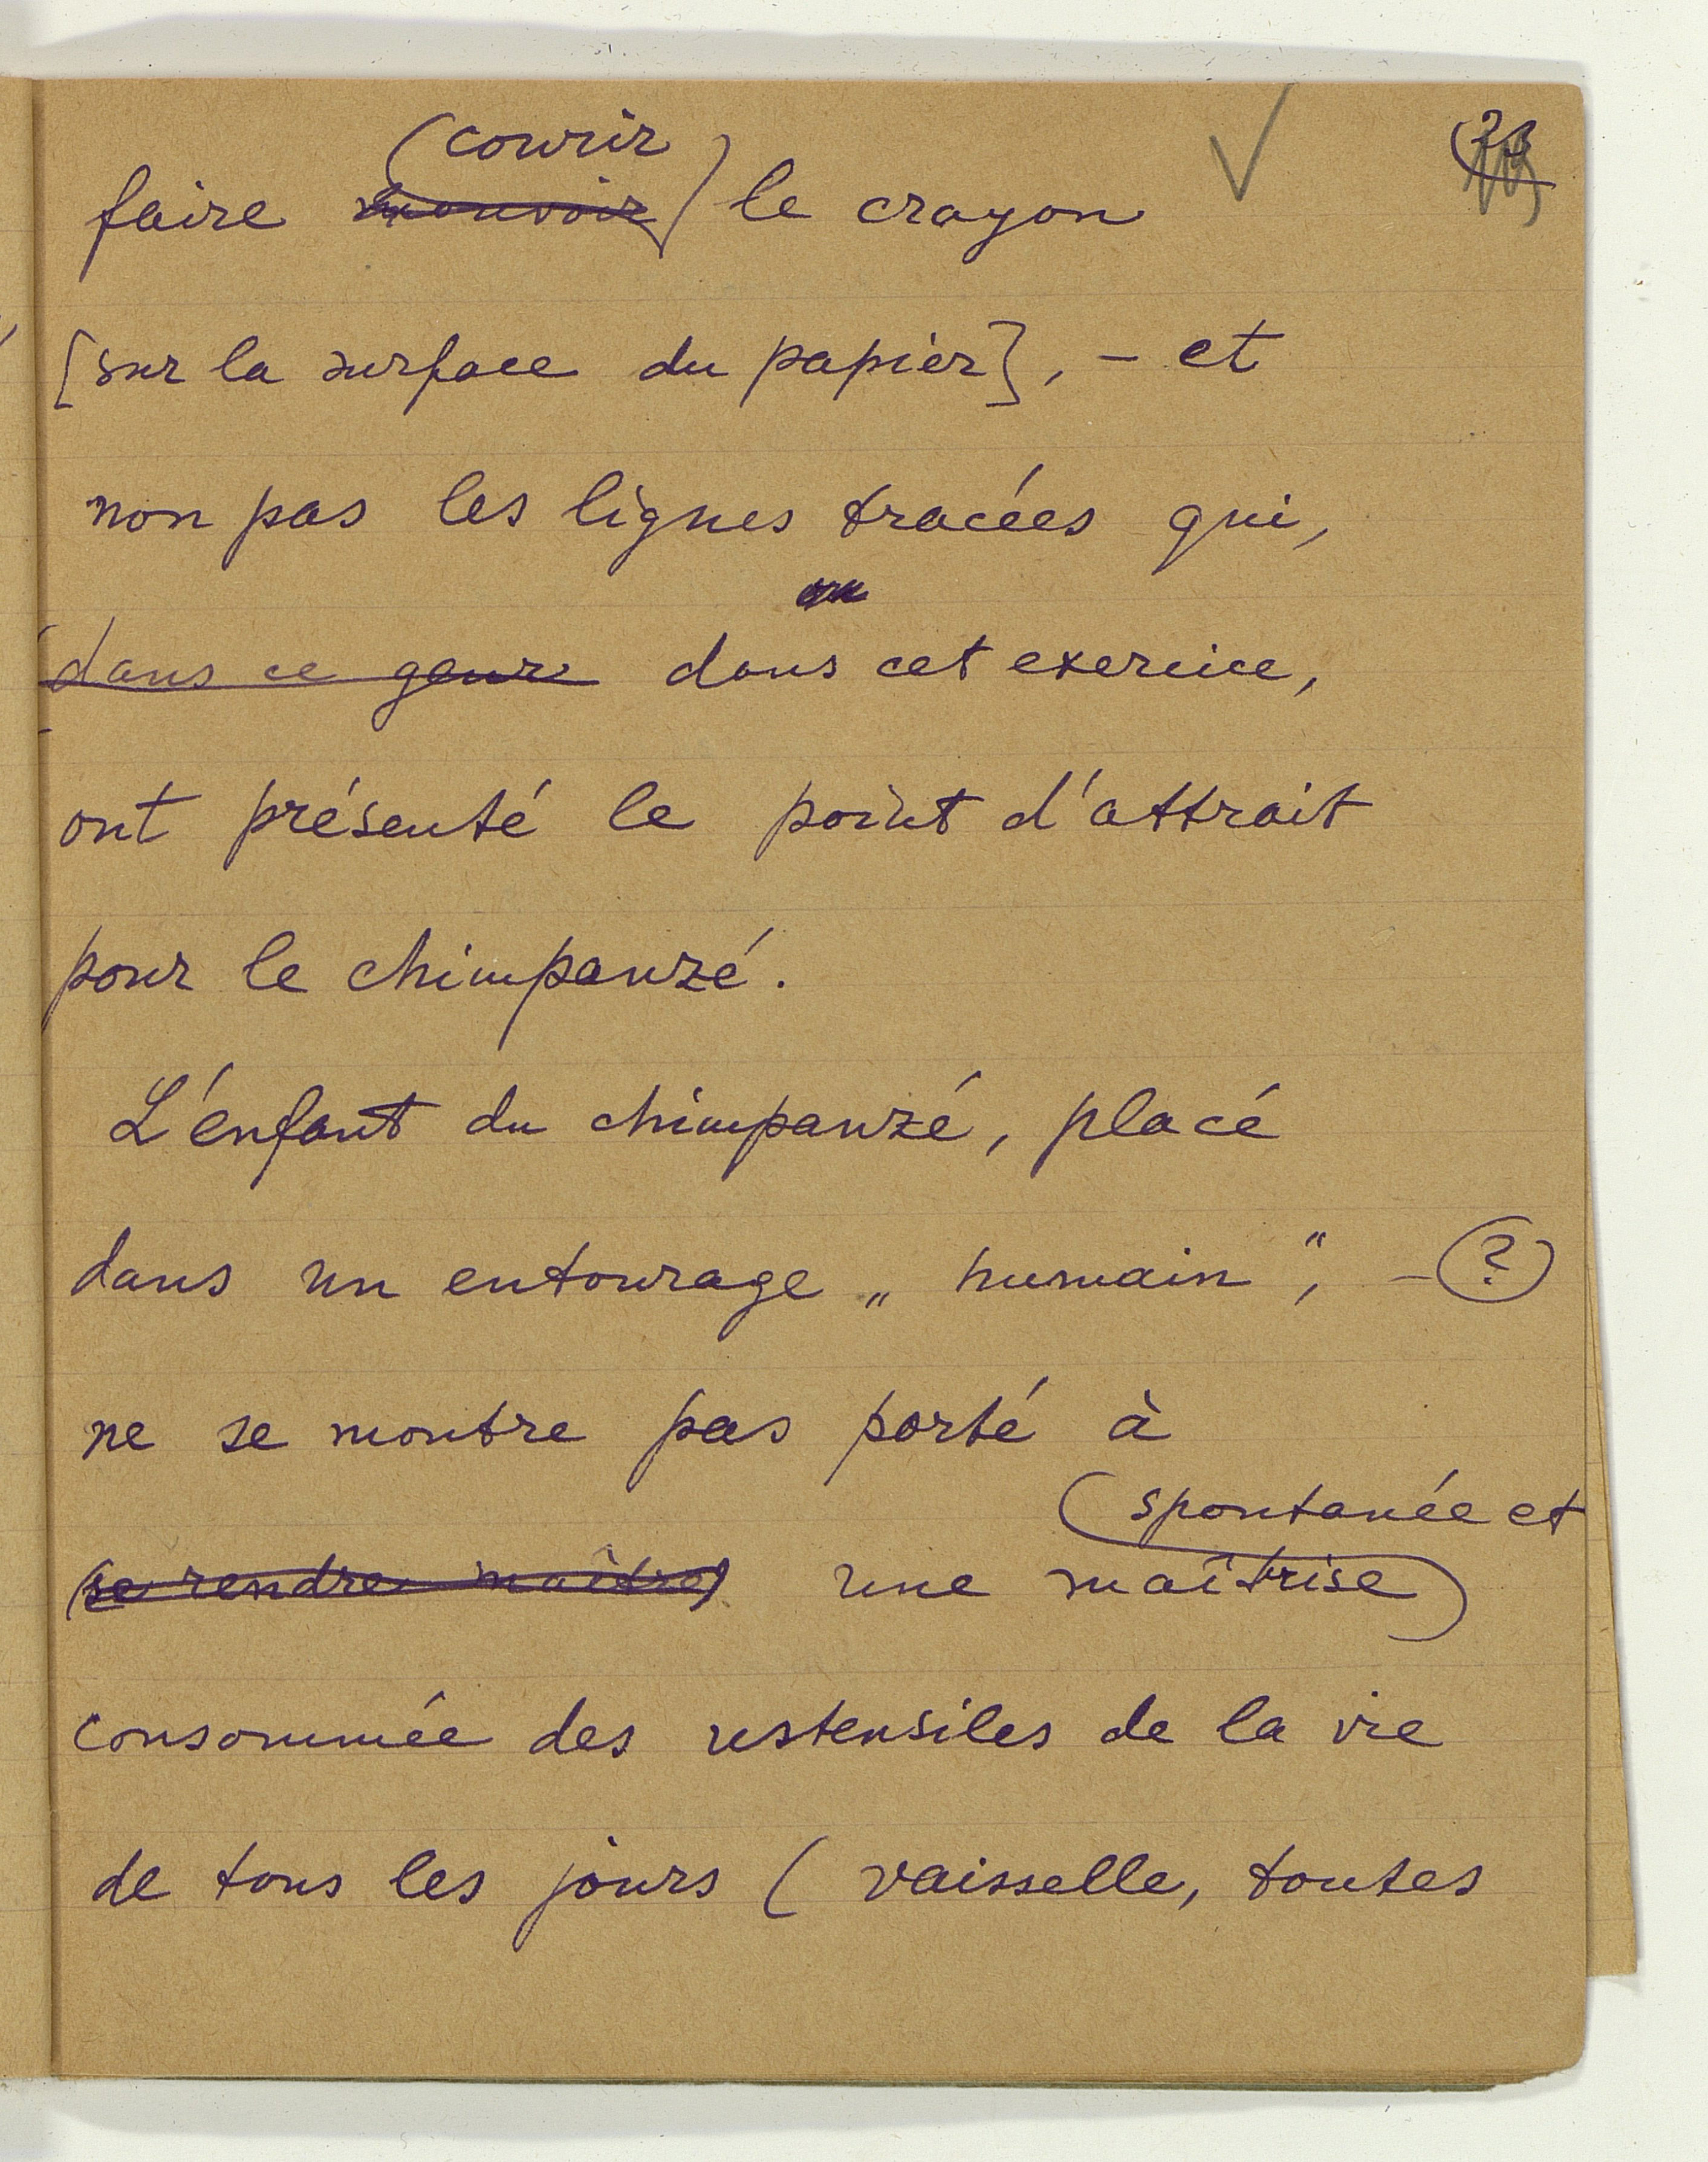 (courir
faire mouvoir) le crayon
[sur la surface du papier], – et
non pas les lignes tracées qui,
dans ce genre dans cet exercice,
ont présenté le point d'attrait
pour le chimpanzé.
L'enfant du chimpanzé, placé
dans un entourage „ humain “, – (?)
ne se montre pas porté à
(spontanée et
(se rendre maître) une maîtrise)
consommée des ustensiles de la vie
de tous les jours ( vaisselle, toutes